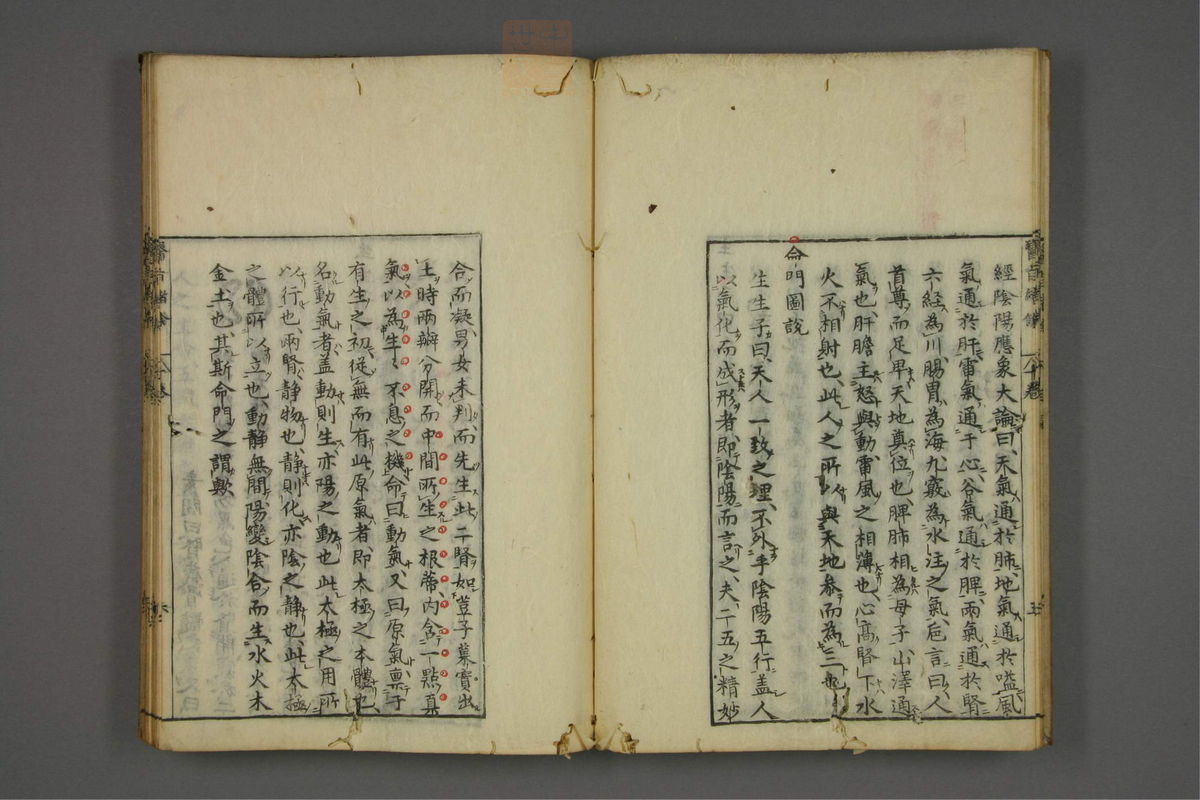 經陰陽應象大論曰、天氣通於肺、地氣通於嗌、風
氣通於肝、雷氣通于心、谷氣通於脾、雨氣通於腎
六經為川、腸胃為海、九竅為水注之氣、巵言曰、人
首尊而足卑、天地奠位也、脾肺相為母子、山澤通
氣也、肝膽主怒與動、雷風之相薄也、心高腎下、水
火不相射也、此人之所以與天地參而為三也
命門圖說
生生子曰、天人一致之理、不外乎陰陽五行、盖人
以氣化而成形者、即陰陽而言之、夫二五之精妙
合而凝、男女未判、而先生此二腎、如荳子菓實、出
土時兩瓣分開、而中間所生之根蒂、内含一點真
氣、以為生〻不息之機、命曰動氣、又曰原氣、禀于
有生之初、從無而有、此原氣者、即太極之本體也
名動氣者、盖動則生、亦陽之動也、此太極之用所
以行也、兩腎静物也、静則化、亦陰之静也、此太極
之體所以立也、動静無間、陽變陰合、而生水火木
金土也、其斯命門之謂歟